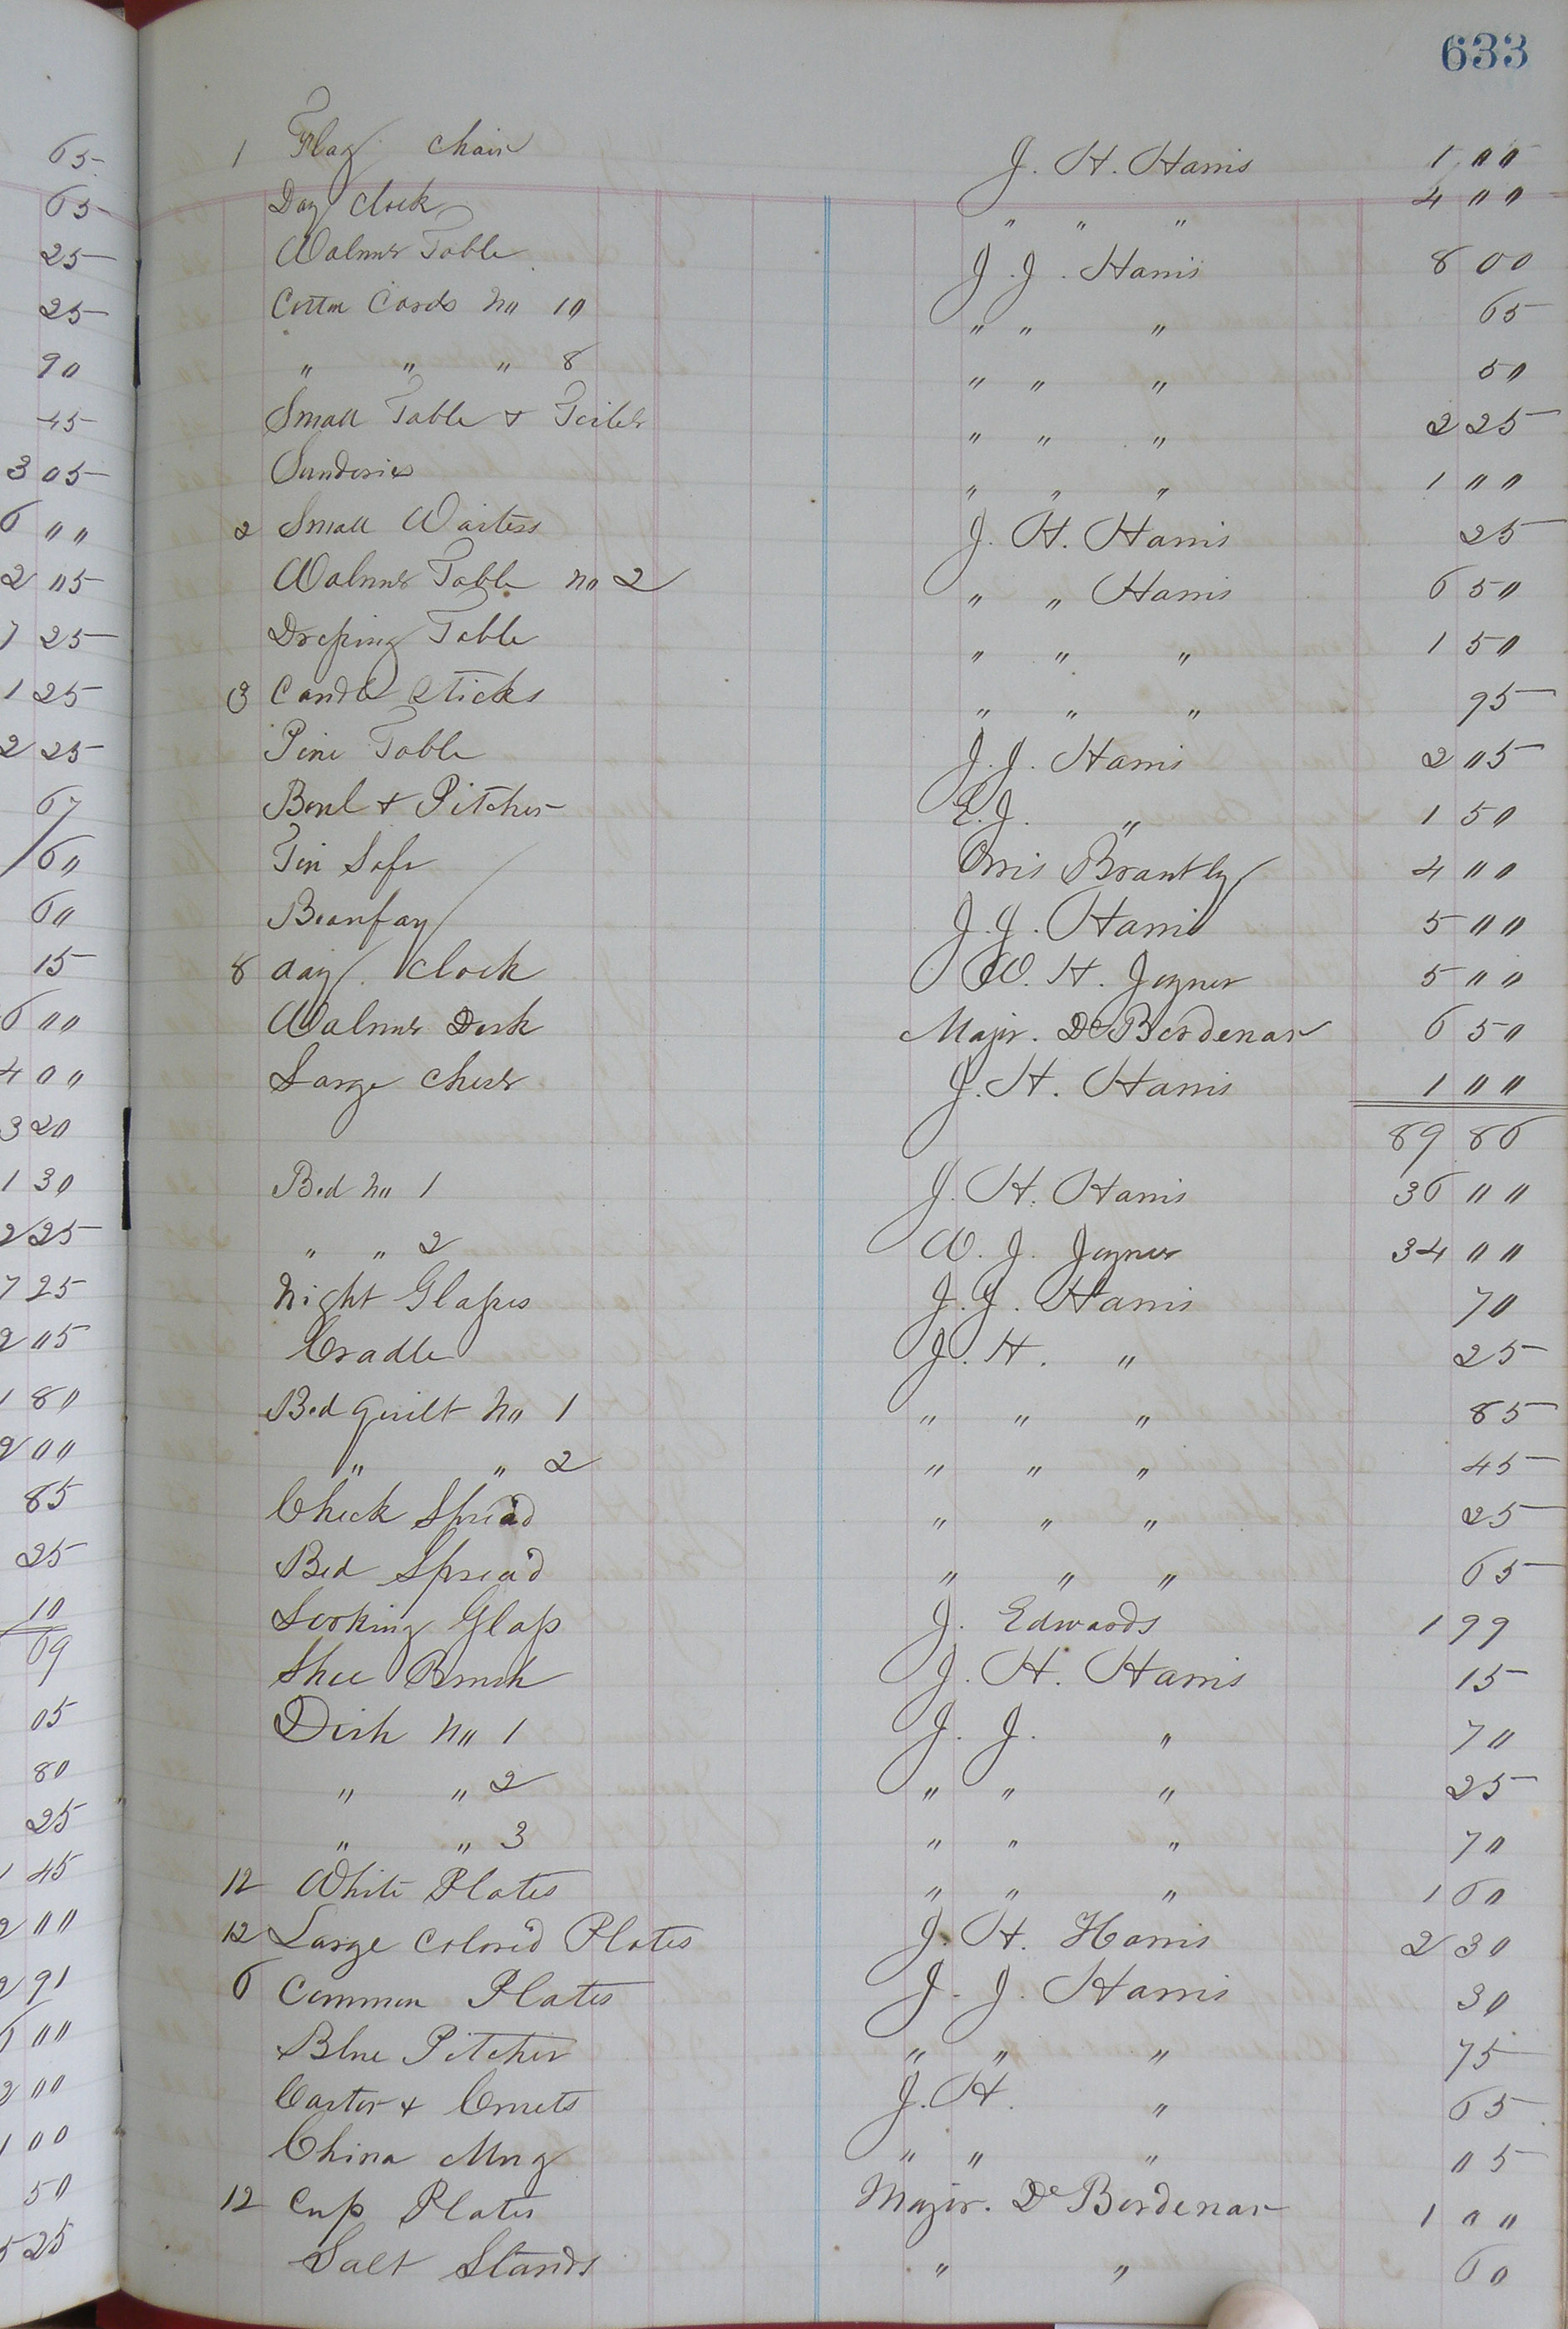 633
65
65
25
25
90
45
3 05
6 00
2 05
7 25
1 25
2 25
67
60
60
15
6 00
4 00
3 20
1 30
2 25
7 25
2 05
1 80
2 00
85
25
10
69
05
80
25
1 45
2 00
2 91
6 00
2 00
1 00
50
5 25
1 Flag chair J. H. Harris 1 00
Day Clock " " " 4 00
Walnut Table J. J. Harris 8 00
Cotton Cards No 10 " " " 65
" " " 8 " " " 50
Small Table & " " " 2 25
Sunderies " " " 1 00
2 Small Waiters J. H. Harris 25
Walnut Table No 2 " " Harris 6 50
Dressing Table " " " 1 50
3 Candle Sticks " " " 95
Pine Table J. J. Harris 2 05
Bowl & Pitcher E. J. " 1 50
Tin Safe Orris Brantley 4 00
Beaufay J. J. Harris 5 00
8 day Clock W. H. Joyner 5 00
Walnut Desk Majr. De Bordenar 6 50
Large Chest J. H. Harris 1 00
89 86
Bed No 1 J. H. Harris 36 00
" " 2 W. J. Joyner 34 00
Night Glasses J. J. Harris 70
Cradle J. H. " 25
Bed Quilt No 1 " " " 85
" " 2 " " " 45
Check Spread " " " 25
Bed Spread " " " 65
Looking Glass J. Edwards 1 99
Shoe Brush J. H. Harris 15
Dish No 1 J. J. " 70
" " 2 " " " 25
" " 3 " " " 70
12 White Plates " " " 1 60
12 Large Colored Plates J. H. Harris 2 30
6 Common Plates J. J. Harris 30
Blue Pitcher " " " 75
Castor & Cruets J. H. " 65
China Mug " " " 05
12 Cup Plates Majr. De Bordenar 1 00
Salt Stands " " 60